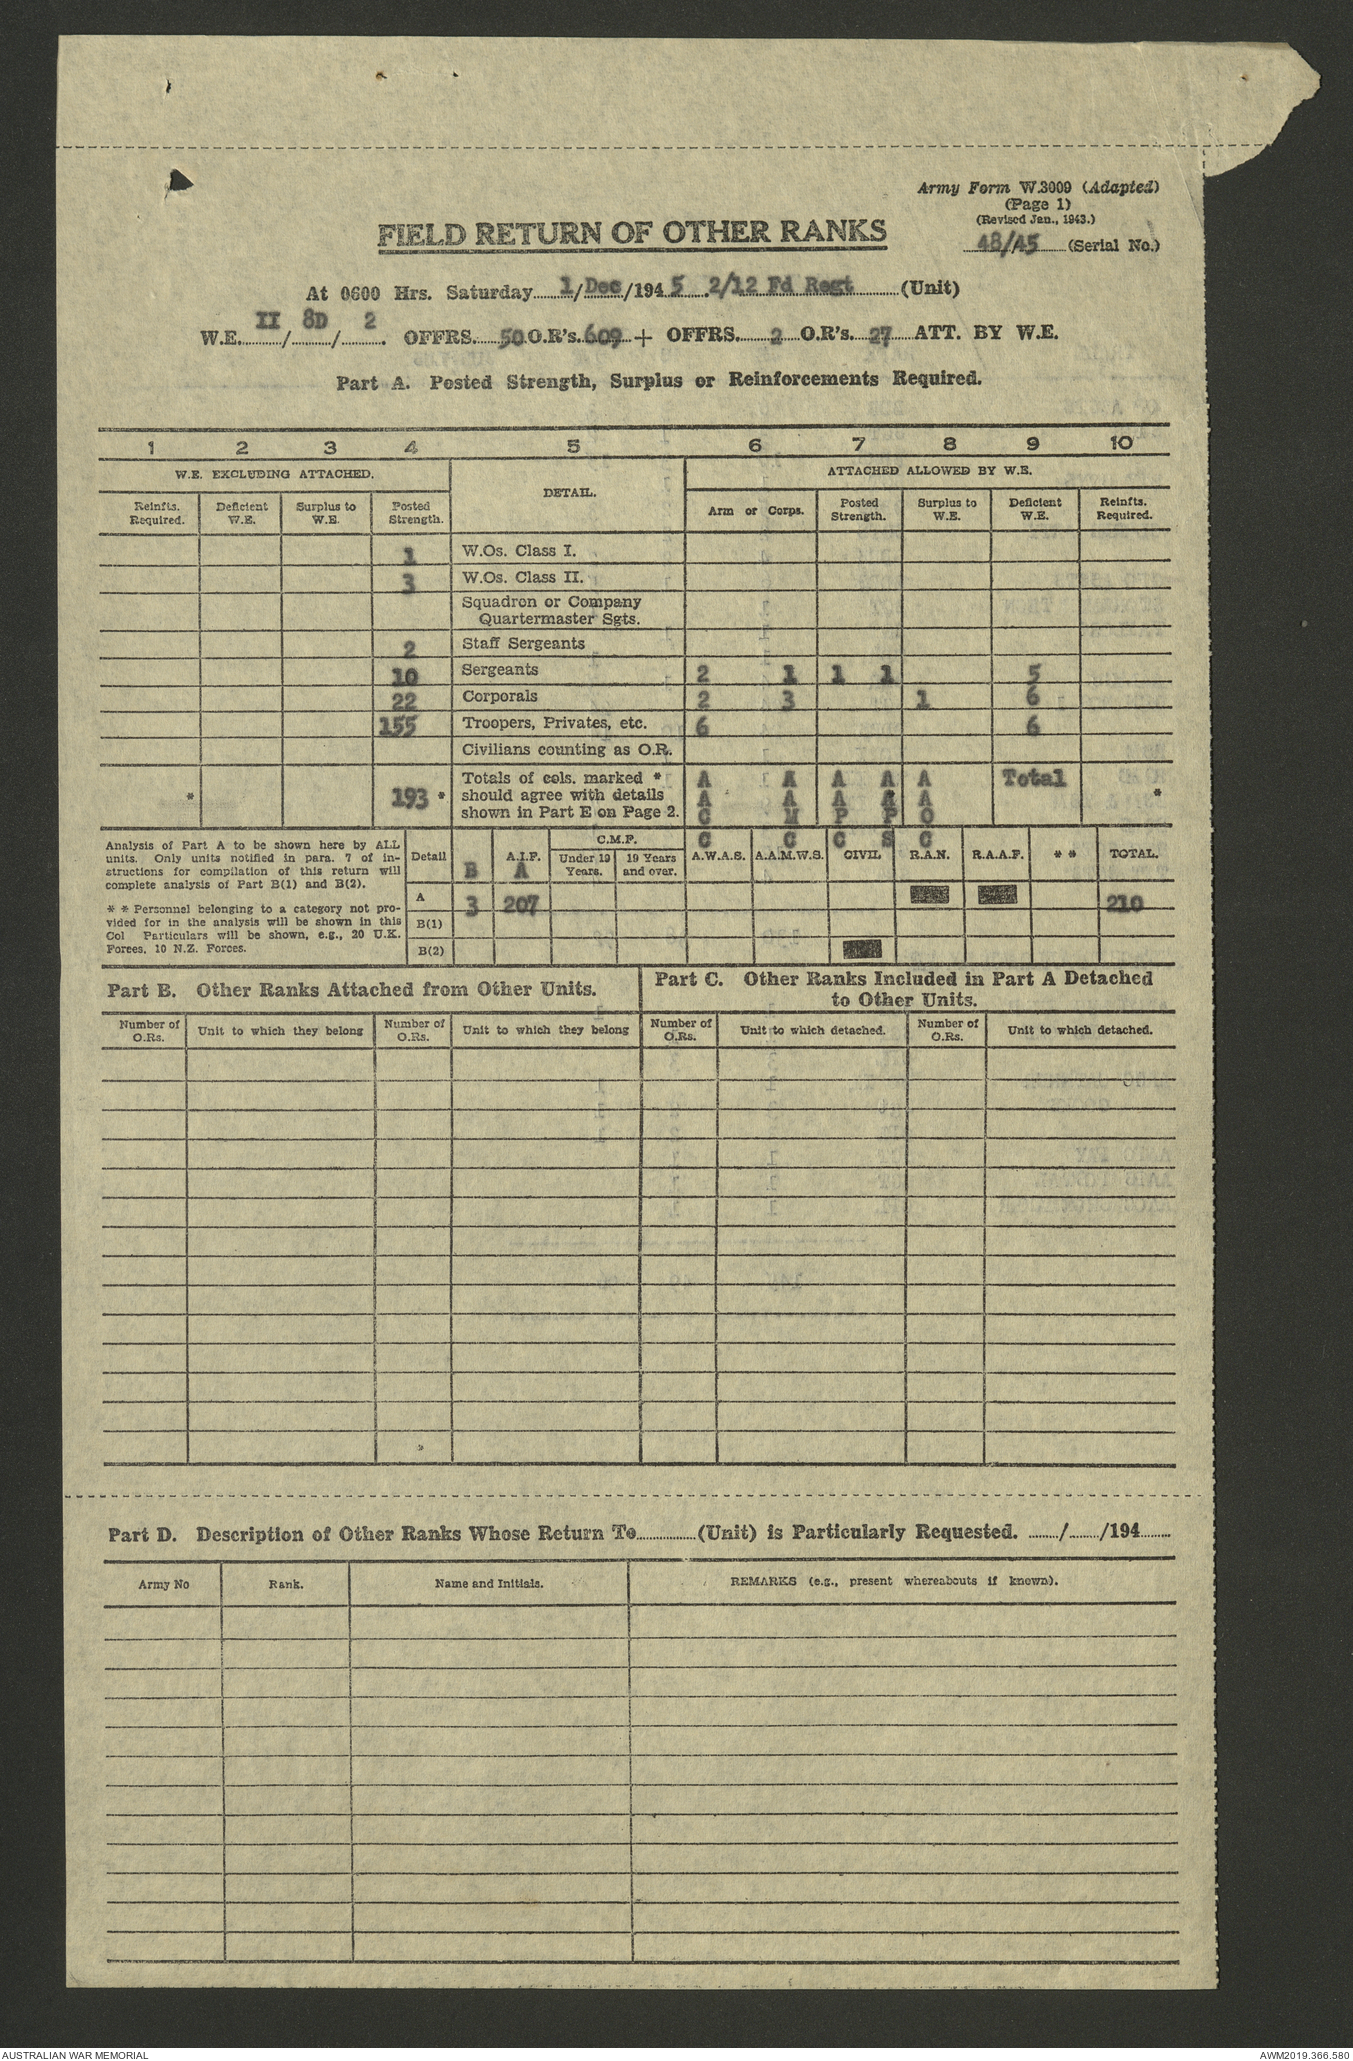 Army Form W.3009 (Adapted)
(Page 1)
(Revised Jan., 1943.)
FIELD RETURN OF OTHER RANKS
48/45 (Serial No.)
At 0600 Hrs. Saturday 1/Dec/1945 2/12 Fd Regt (Unit)
W.E. II / 8D / 2. OFFRS. 50 O.R's. 609 + OFFRS. 2 O.R's. 27 ATT. BY W.E.
Part A. Posted Strength, Surplus or Reinforcements Required.
1 2 3 4 5 6 7 8 9 10
W.E. EXCLUDING ATTACHED. DETAIL. ATTACHED ALLOWED BY W.E.
Reinfts. Required. Deficient W.E. Surplus to W.E. Posted Strength. Arm or Corps. Posted Strength. Surplus to W.E. Deficient W.E. Reinfts. Required.
1 W.Os. Class I.
3 W.Os. Class II.
Squadron or Company
Quartermaster Sgts.
2 Staff Sergeants
10 Sergeants 2 1 1 1 5
22 Corporals 2 3 1 6
155 Troopers, Privates, etc. 6 6
Civilians counting as O.R.
Totals of cols. marked * A A A A A Total
* 193 * should agree with details A A A A A *
shown in Part E on Page 2. C M P P O
C C C S C
Analysis of Part A to be shown here by ALL
units. Only units notified in para. 7 of in-
structions for compilation of this return will
complete analysis of Part B(1) and B(2).
* * Personnel belonging to a category not pro-
vided for in the analysis will be shown in this
Col Particulars will be shown, e.g., 20 U.K.
Forces, 10 N.Z. Forces.
Detail B A.I.F. A C.M.F. Under 19 Years. 19 Years and over. A.W.A.S. A.A.M.W.S. CIVIL R.A.N. R.A.A.F. * * TOTAL.
A 3 207 210
B(1)
B(2)
Part B. Other Ranks Attached from Other Units.
Part C. Other Ranks Included in Part A Detached
to Other Units.
Number of O.Rs. Unit to which they belong Number of O.Rs. Unit to which they belong Number of O.Rs. Unit to which detached. Number of O.Rs. Unit to which detached.
Part D. Description of Other Ranks Whose Return To (Unit) is Particularly Requested. / /194
Army No Rank. Name and Initials. REMARKS (e.g., present whereabouts if known).
AUSTRALIAN WAR MEMORIAL AWM2019.366.580